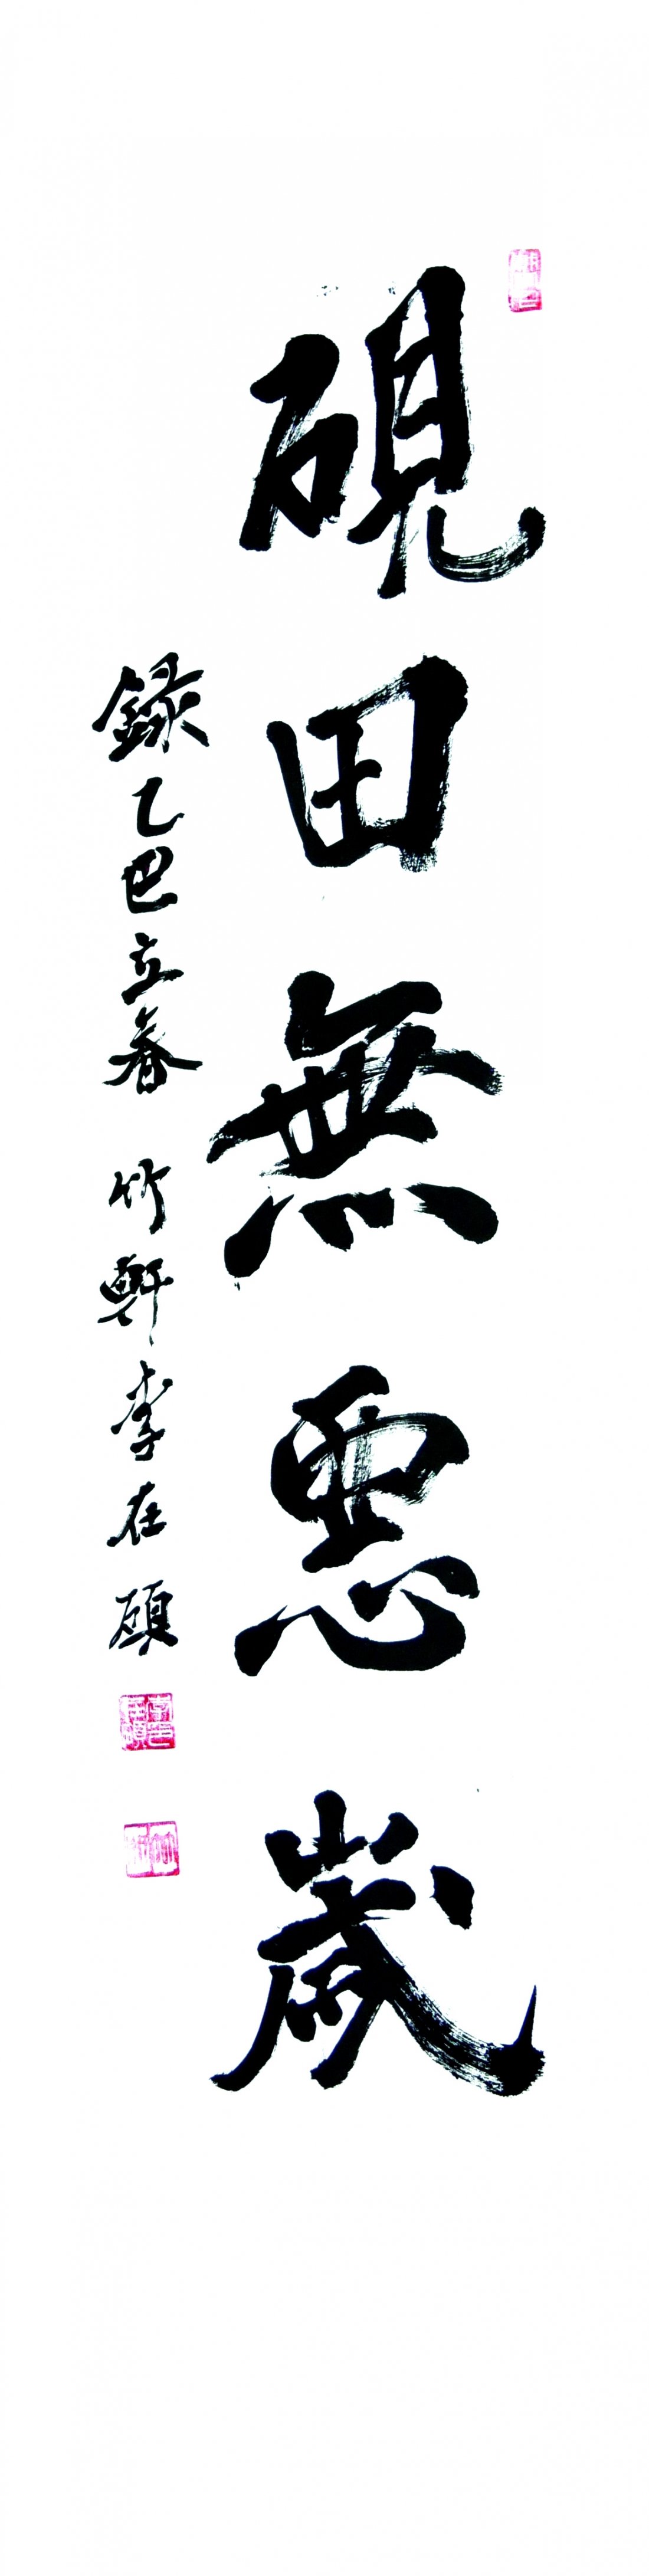 硯田無惡歲
錄乙巳立春 竹軒李在頎